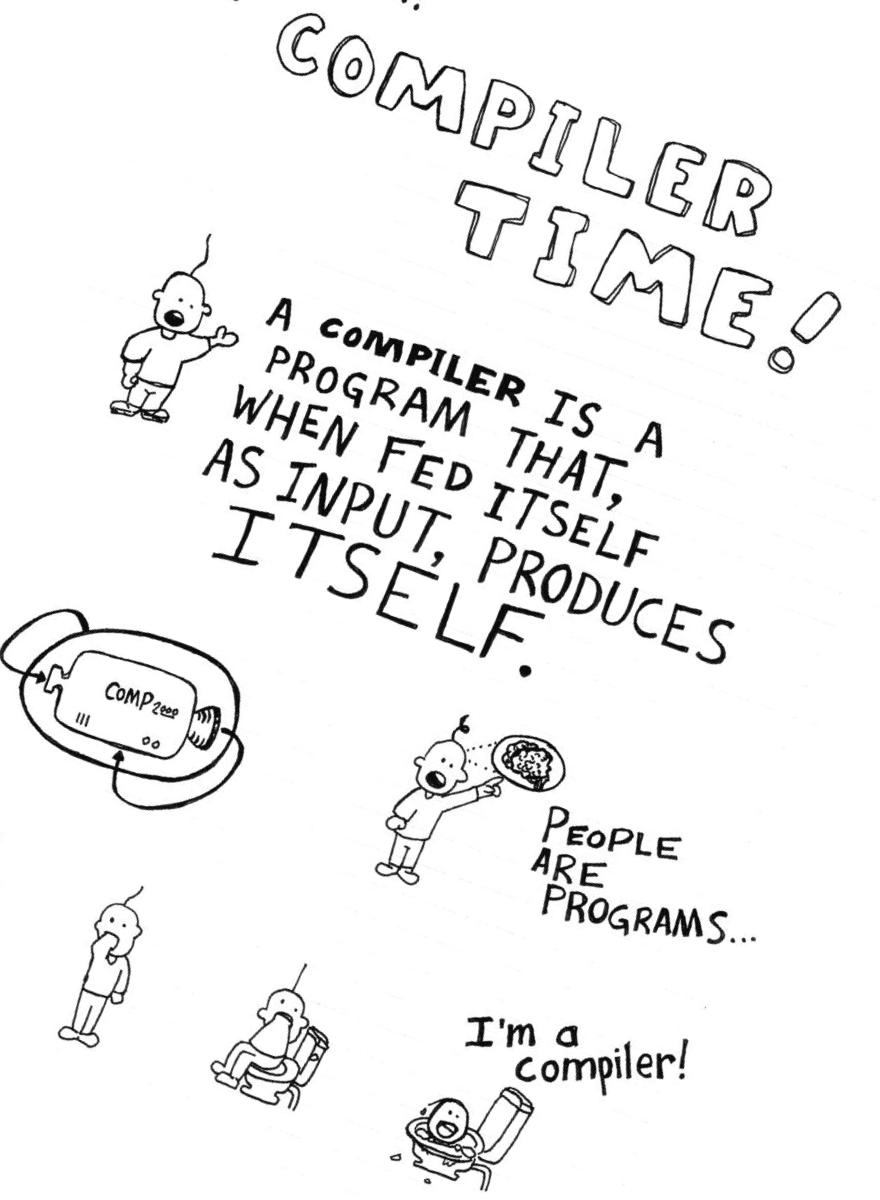 COMPILER
TIME!
A COMPILER IS A
PROGRAM THAT,
WHEN FED ITSELF
AS INPUT, PRODUCES
ITSELF.
COMP2000
PEOPLE
ARE
PROGRAMS...
I'm a
compiler!